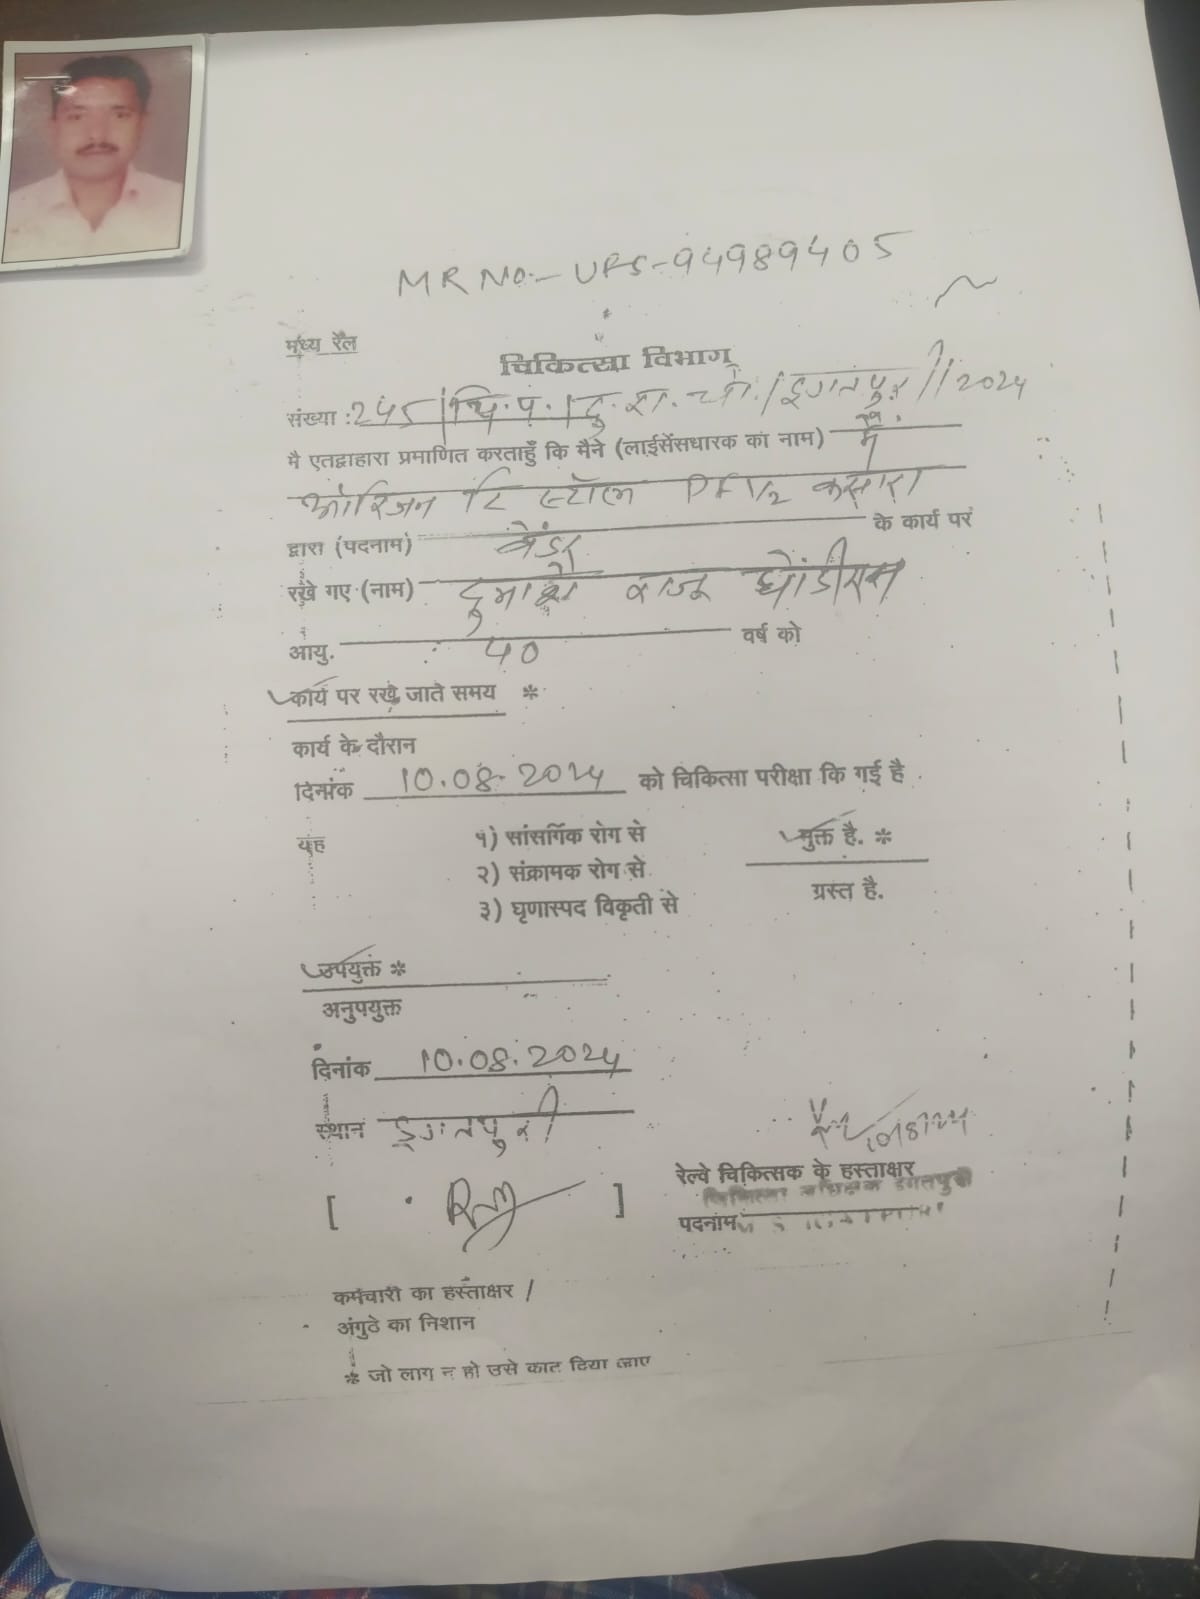 MR NO:- UFS-94989405
मध्य रेल
चिकित्सा विभाग
संख्या :245/चि.प./दु.शा.चौ./इगतपुरी/2024
मै एतद्वाहारा प्रमाणित करताहुँ कि मैने (लाईसेंसधारक का नाम) मे.
ओरिजन टि स्टॉल PF1/2 कसारा
द्वारा (पदनाम) वेंडर के कार्य पर
रखे गए (नाम) राजू धोंडीराम
आयु. 40 वर्ष को
कार्य पर रखे जाते समय *
कार्य के दौरान
दिनांक 10.08.2024 को चिकित्सा परीक्षा कि गई है.
यह १) सांसर्गिक रोग से मुक्त है. *
२) संक्रामक रोग से
३) घृणास्पद विकृती से ग्रस्त है.
उपयुक्त *
अनुपयुक्त
दिनांक 10.08.2024
स्थान इगतपुरी
10/8/2024
रेल्वे चिकित्सक के हस्ताक्षर
[ ]
पदनाम
कर्मचारी का हस्ताक्षर /
अंगुठे का निशान
* जो लागू न हो उसे काट दिया जाए